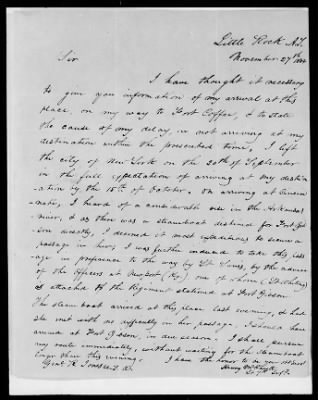 Little Rock A.T.
November 27th
Sir
I have thought it necessary
to give you information of my arrival at this
place, on my way to Fort Coffee, & to state
the cause of my delay, in not arriving at my
destination within the prescribed time. I left
the city of New York on the 20th of September
in the full expectation of arriving at my destin
ation by the 15th of October. On arriving at Cincin
nati, I heard of a considerable rise in the Arkansas
river, & as there was a steamboat destined for Fort Gib
son directly, I deemed it most expeditious to secure a
passage in her; I was further induced to take this pass
age in preference to the way by St. Louis, by the advice
of the Officers at Newport (Ky.) one of whom
is attached to the Regiment stationed at Fort Gibson.
The steamboat arrived at this place last evening, & had
she met with no difficulty on her passage, I should have
arrived at Fort Gibson, in due season. I shall pursue
my route immediately, without waiting for the steamboat
longer than this morning.
I have the honor to be your obt servt
Genl. R. Jones